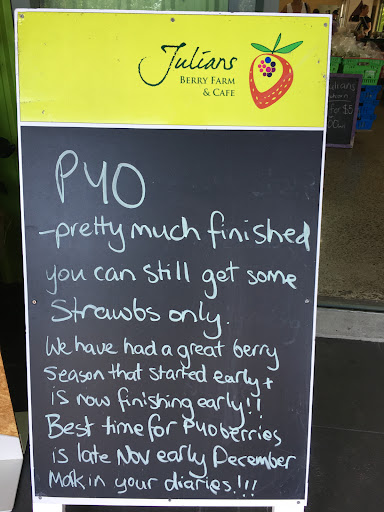 Julians
BERRY FARM
& CAFE
PYO
-pretty much finished
you can still get some
Strawbs only.
We have had a great berry
season that started early +
is now finishing early!!
Best time for PYO berries
is late Nov early December
Mak in your diaries!!!